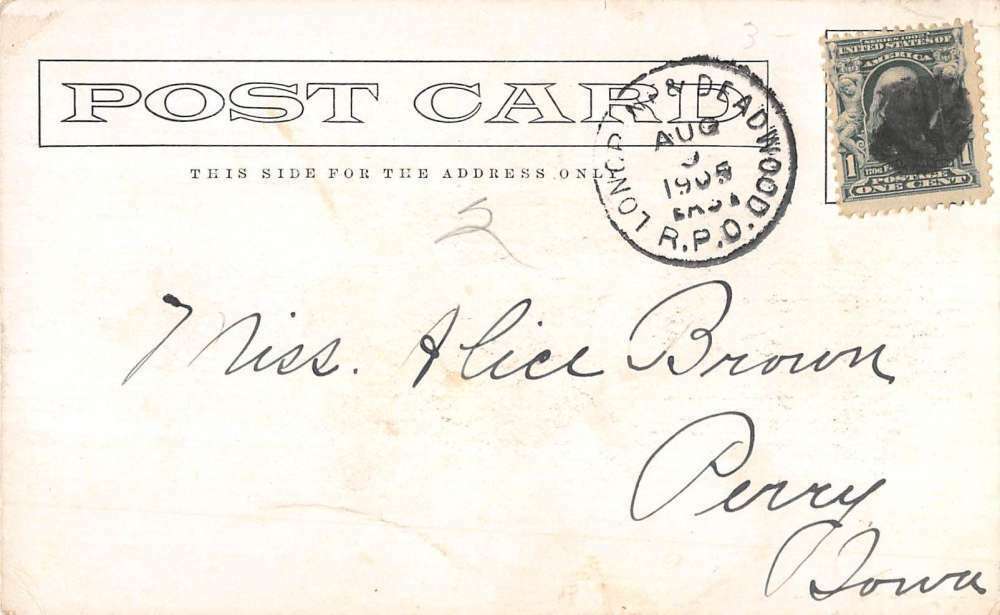 POST CARD
THIS SIDE FOR THE ADDRESS ONLY
& DEADWOOD
AUG
1905
EAST
R.P.O.
SERIES 1902
UNITED STATES OF
AMERICA
1
POSTAGE
ONE CENT
3
Miss. Alice Brown
Perry
Iowa